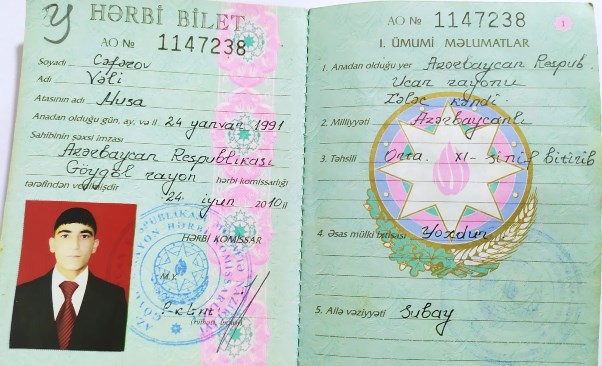 HƏRBİ BİLET
AO № 1147238
Soyadı Cəfərov
Adı Vəli
Atasının adı Musa
Anadan olduğu gün, ay, və il 24 yanvar 1991
Sahibinin şəxsi imzası
Azərbaycan Respublikası
Göygöl rayon hərbi komissarlığı
tərəfindən verilmişdir
24 iyun 2010 il
HƏRBİ KOMİSSAR
M.Y.
AO № 1147238
1
I. ÜMUMİ MƏLUMATLAR
1. Anadan olduğu yer Azərbaycan Respub
Ucar rayonu
kəndi
2. Milliyyəti Azərbaycanlı
3. Təhsili Orta XI- sinif bitirib
4. Əsas mülki ixtisası Yoxdur
5. Ailə vəziyyəti Subay